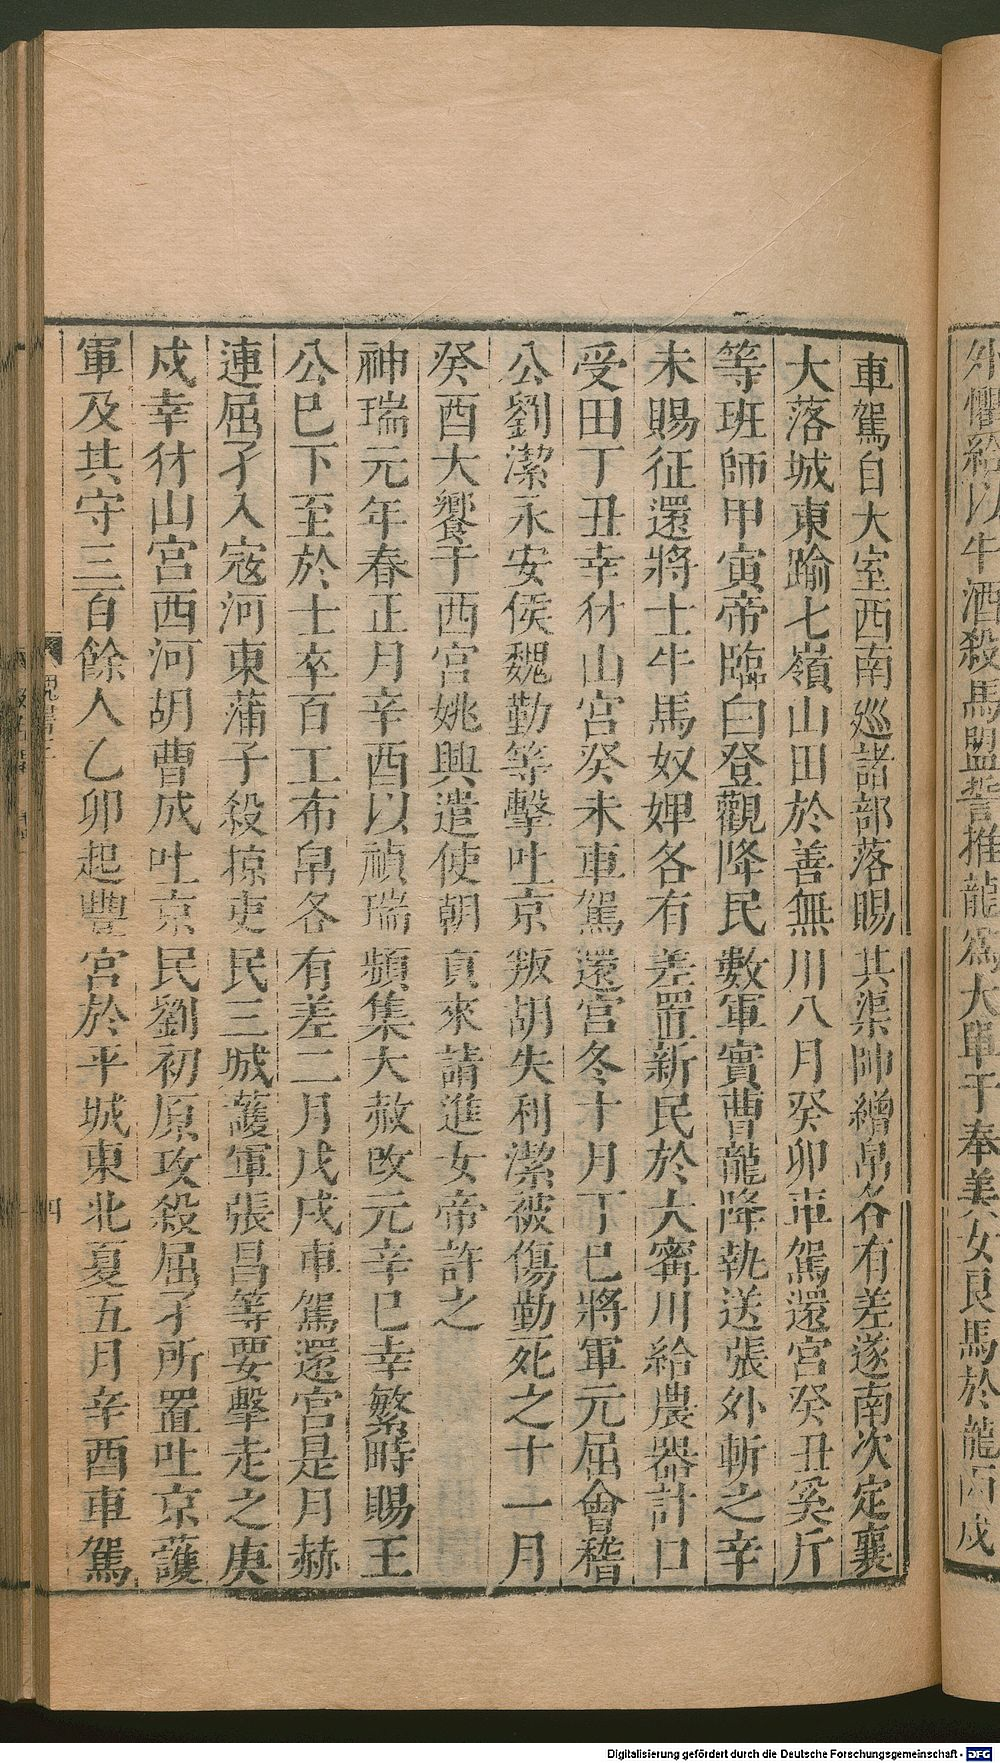 外懼給以牛酒殺馬盟誓推龍爲大單于奉美女良馬於龍丙戌
車駕自大室西南巡諸部落賜其渠帥繒帛各有差遂南次定襄
大落城東踰七嶺山田於善無川八月癸卯車駕還宮癸丑奚斤
等班師甲寅帝臨白登觀降民數軍實曹龍降執送張外斬之辛
未賜征還將士牛馬奴婢各有差置新民於大甯川給農器計口
受田丁丑幸犲山宮癸未車駕還宮冬十月丁巳將軍元屈會稽
公劉潔永安侯魏勤等擊吐京叛胡失利潔被傷勤死之十一月
癸酉大饗于西宮姚興遣使朝貢來請進女帝許之
神瑞元年春正月辛酉以禎瑞頻集大赦改元辛巳幸繁畤賜王
公巳下至於士卒百工布帛各有差二月戊戌車駕還宮是月赫
連屈孑入寇河東蒲子殺掠吏民三城護軍張昌等要擊走之庚
戌幸犲山宮西河胡曹成吐京民劉初原攻殺屈孑所置吐京護
軍及其守三百餘人乙卯起豐宮於平城東北夏五月辛酉車駕
魏書三
四
Digitalisierung gefördert durch die Deutsche Forschungsgemeinschaft - DFG